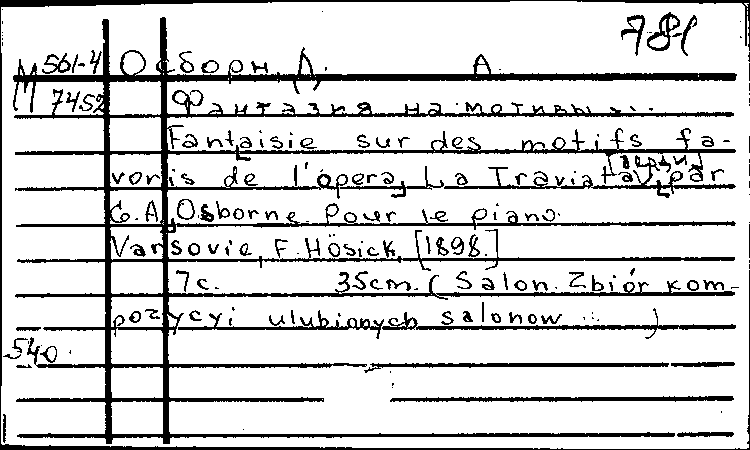 781
М 561-4 Осборн, Д. А.
7452 Фантазия на мотивы ...
Fantaisie sur des motifs fa-
voris de l'opera, La Traviata, [Верди] par
G. A. Osborne pour le piano.
Varsovie, F. Hösick, [1898.]
7с. 35см. (Salon. Zbiór kom-
pozycyi ulubionych salonow ...)
540.